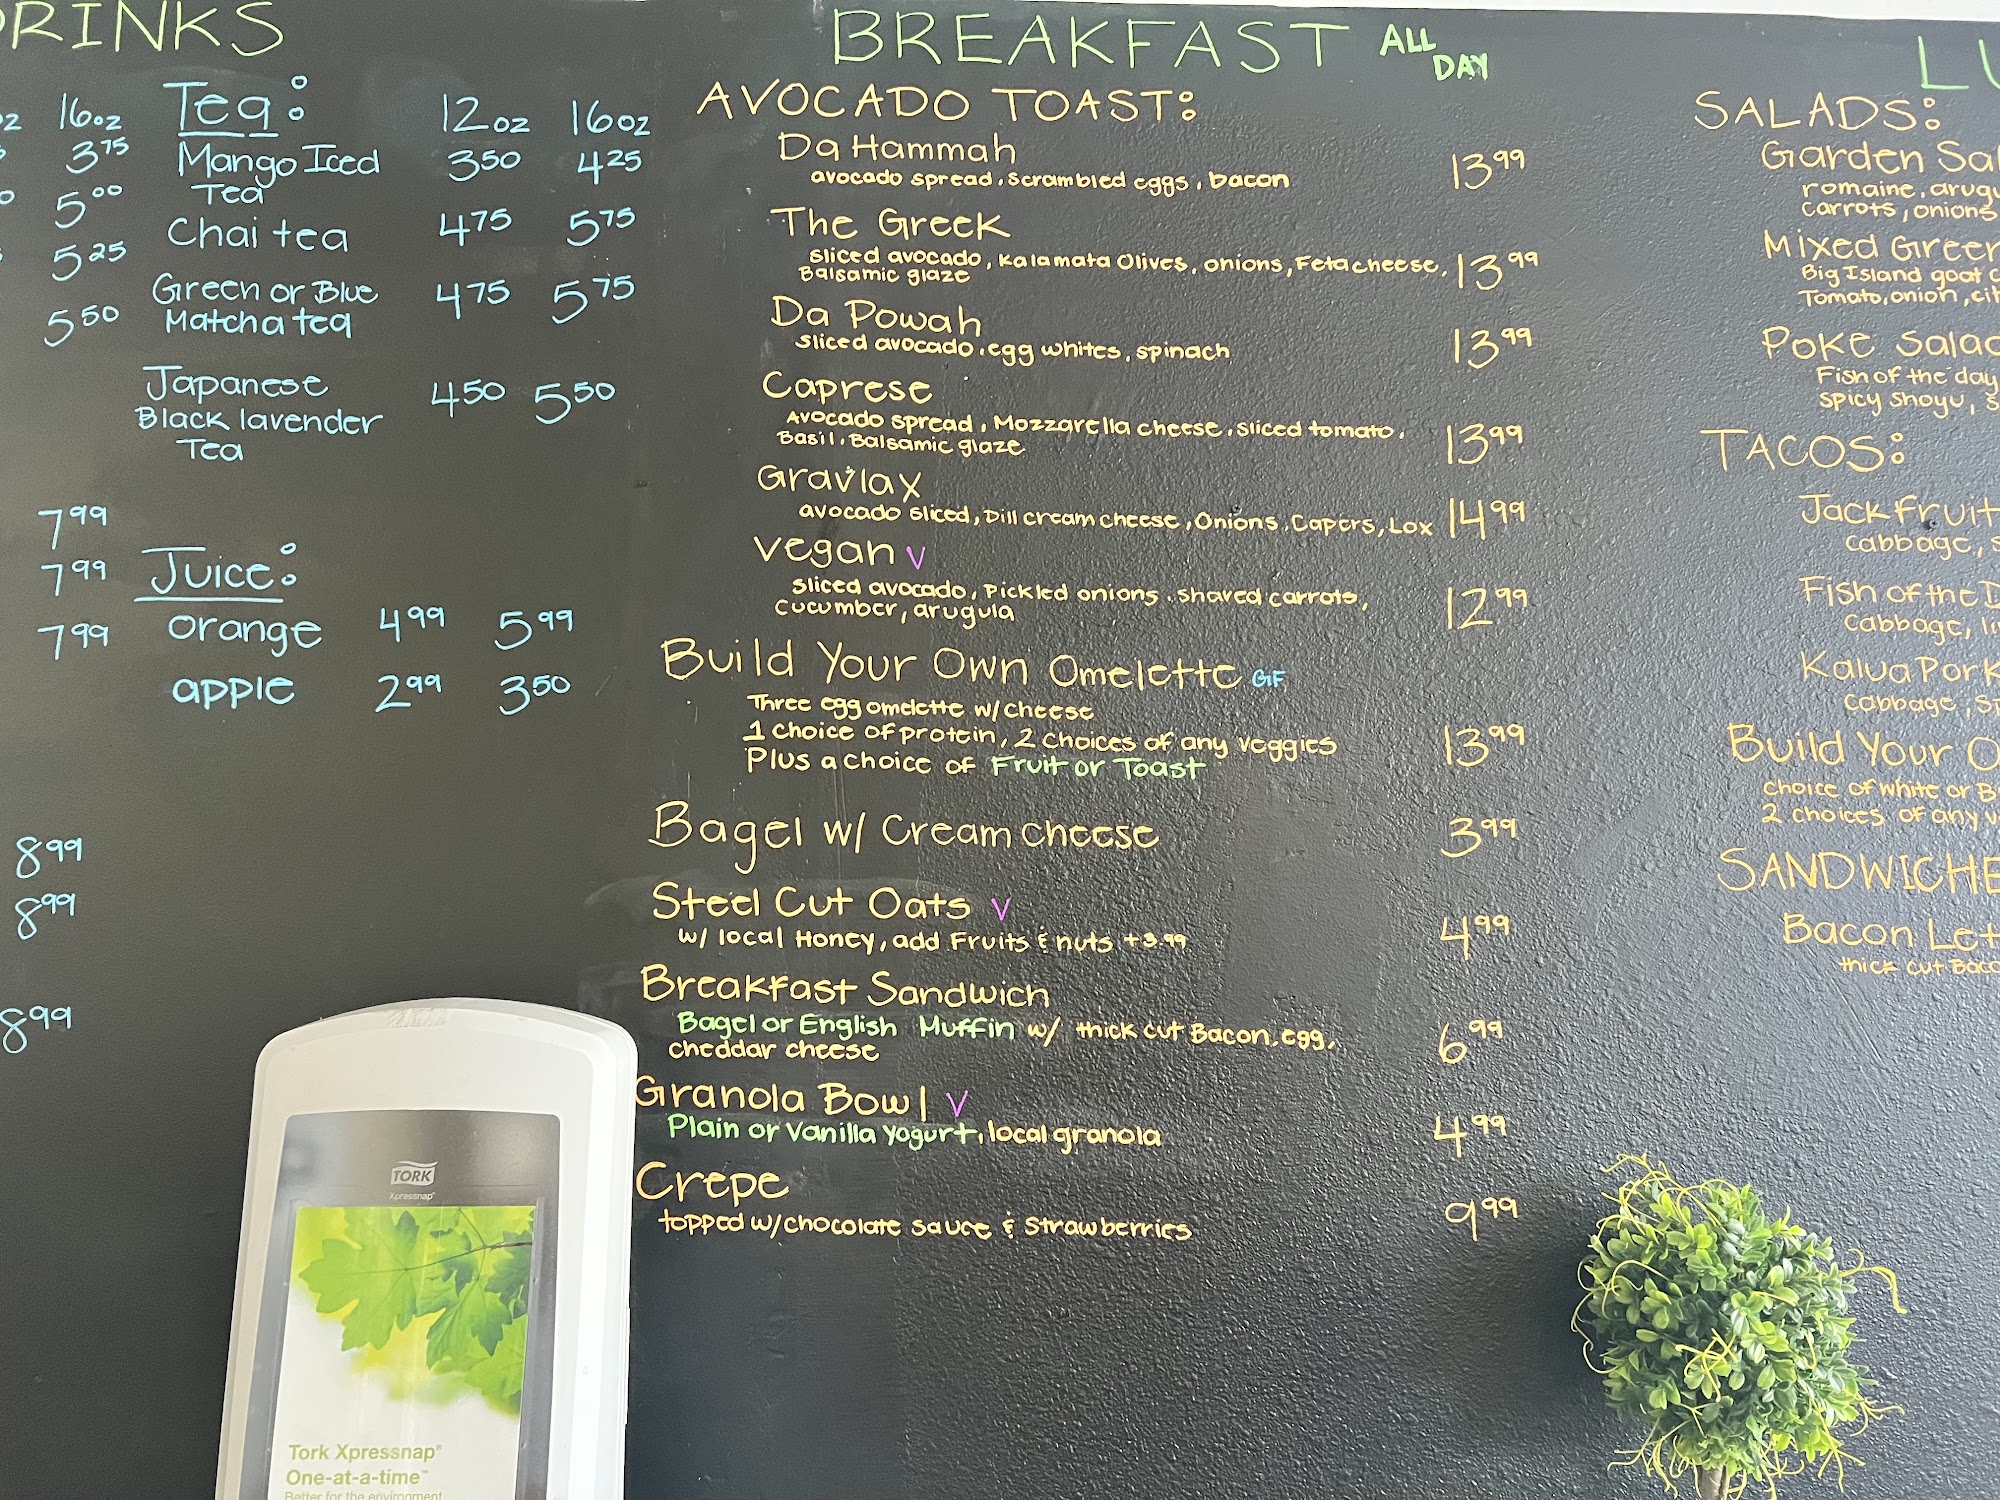 DRINKS
16oz
3.75
5.00
5.25
5.50
7.99
7.99
7.99
8.99
8.99
8.99
Tea: 12oz 16oz
Mango Iced 3.50 4.25
Tea
Chai tea 4.75 5.75
Green or Blue 4.75 5.75
Matcha tea
Japanese 4.50 5.50
Black lavender
Tea
Juice:
orange 4.99 5.99
apple 2.99 3.50
BREAKFAST ALL
DAY
AVOCADO TOAST:
Da Hammah
avocado spread, scrambled eggs, bacon 13.99
The Greek
sliced avocado, Kalamata Olives, onions, Feta cheese, 13.99
Balsamic glaze
Da Powah
sliced avocado, egg whites, spinach 13.99
Caprese
Avocado spread, Mozzarella cheese, sliced tomato, 13.99
Basil, Balsamic glaze
Gravlax
avocado sliced, Dill cream cheese, Onions, Capers, Lox 14.99
Vegan V
sliced avocado, Pickled onions, shaved carrots, 12.99
cucumber, arugula
Build Your Own Omelette GF
Three egg omelette w/ cheese
1 choice of protein, 2 choices of any veggies 13.99
Plus a choice of Fruit or Toast
Bagel w/ Cream cheese 3.99
Steel Cut Oats V
w/ local Honey, add Fruits & nuts +3.99 4.99
Breakfast Sandwich
Bagel or English Muffin w/ thick cut Bacon, egg, 6.99
cheddar cheese
Granola Bowl V
Plain or Vanilla Yogurt, local granola 4.99
Crepe
topped w/ chocolate sauce & Strawberries 9.99
SALADS:
Garden
romaine,
carrots, onions
Mixed
Big Island goat
Tomato, onion,
Poke
Fish of the day
spicy shoyu,
TACOS:
Jack Fruit
cabbage,
Fish of the
cabbage,
Kalua Pork
cabbage,
Build Your
choice of white or
2 choices of any
SANDWICHE
Bacon
thick cut
TORK
Xpressnap®
Tork Xpressnap®
One-at-a-time™
Better for the environment